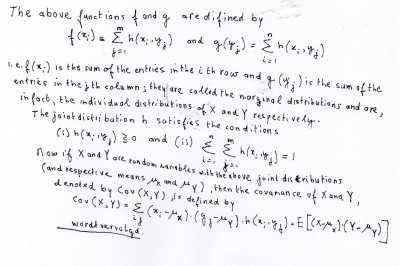 The above functions f and g are difined by
f(xᵢ) = Σⱼ₌₁ᵐ h(xᵢ, yⱼ) and g(yⱼ) = Σᵢ₌₁ⁿ h(xᵢ, yⱼ)
i.e. f(xᵢ) is the sum of the entries in the i th row and g(yⱼ) is the sum of the
entries in the j th column; they are called the marginal distributions and are,
in fact, the individual distributions of X and Y respectively.
The joint distribution h satisfies the conditions
(i) h(xᵢ, yⱼ) ≧ 0 and (ii) Σᵢ₌₁ⁿ Σⱼ₌₁ᵐ h(xᵢ, yⱼ) = 1
Now if X and Y are random variables with the above joint distributions
(and respective means μₓ and μ_Y), then the covariance of X and Y,
denoted by Cov(X,Y), is defined by
Cov(X,Y) = Σᵢ,ⱼ (xᵢ-μₓ).(yⱼ-μ_Y).h(xᵢ,yⱼ) = E[(X-μₓ).(Y-μ_Y)]
wordt vervolgd.